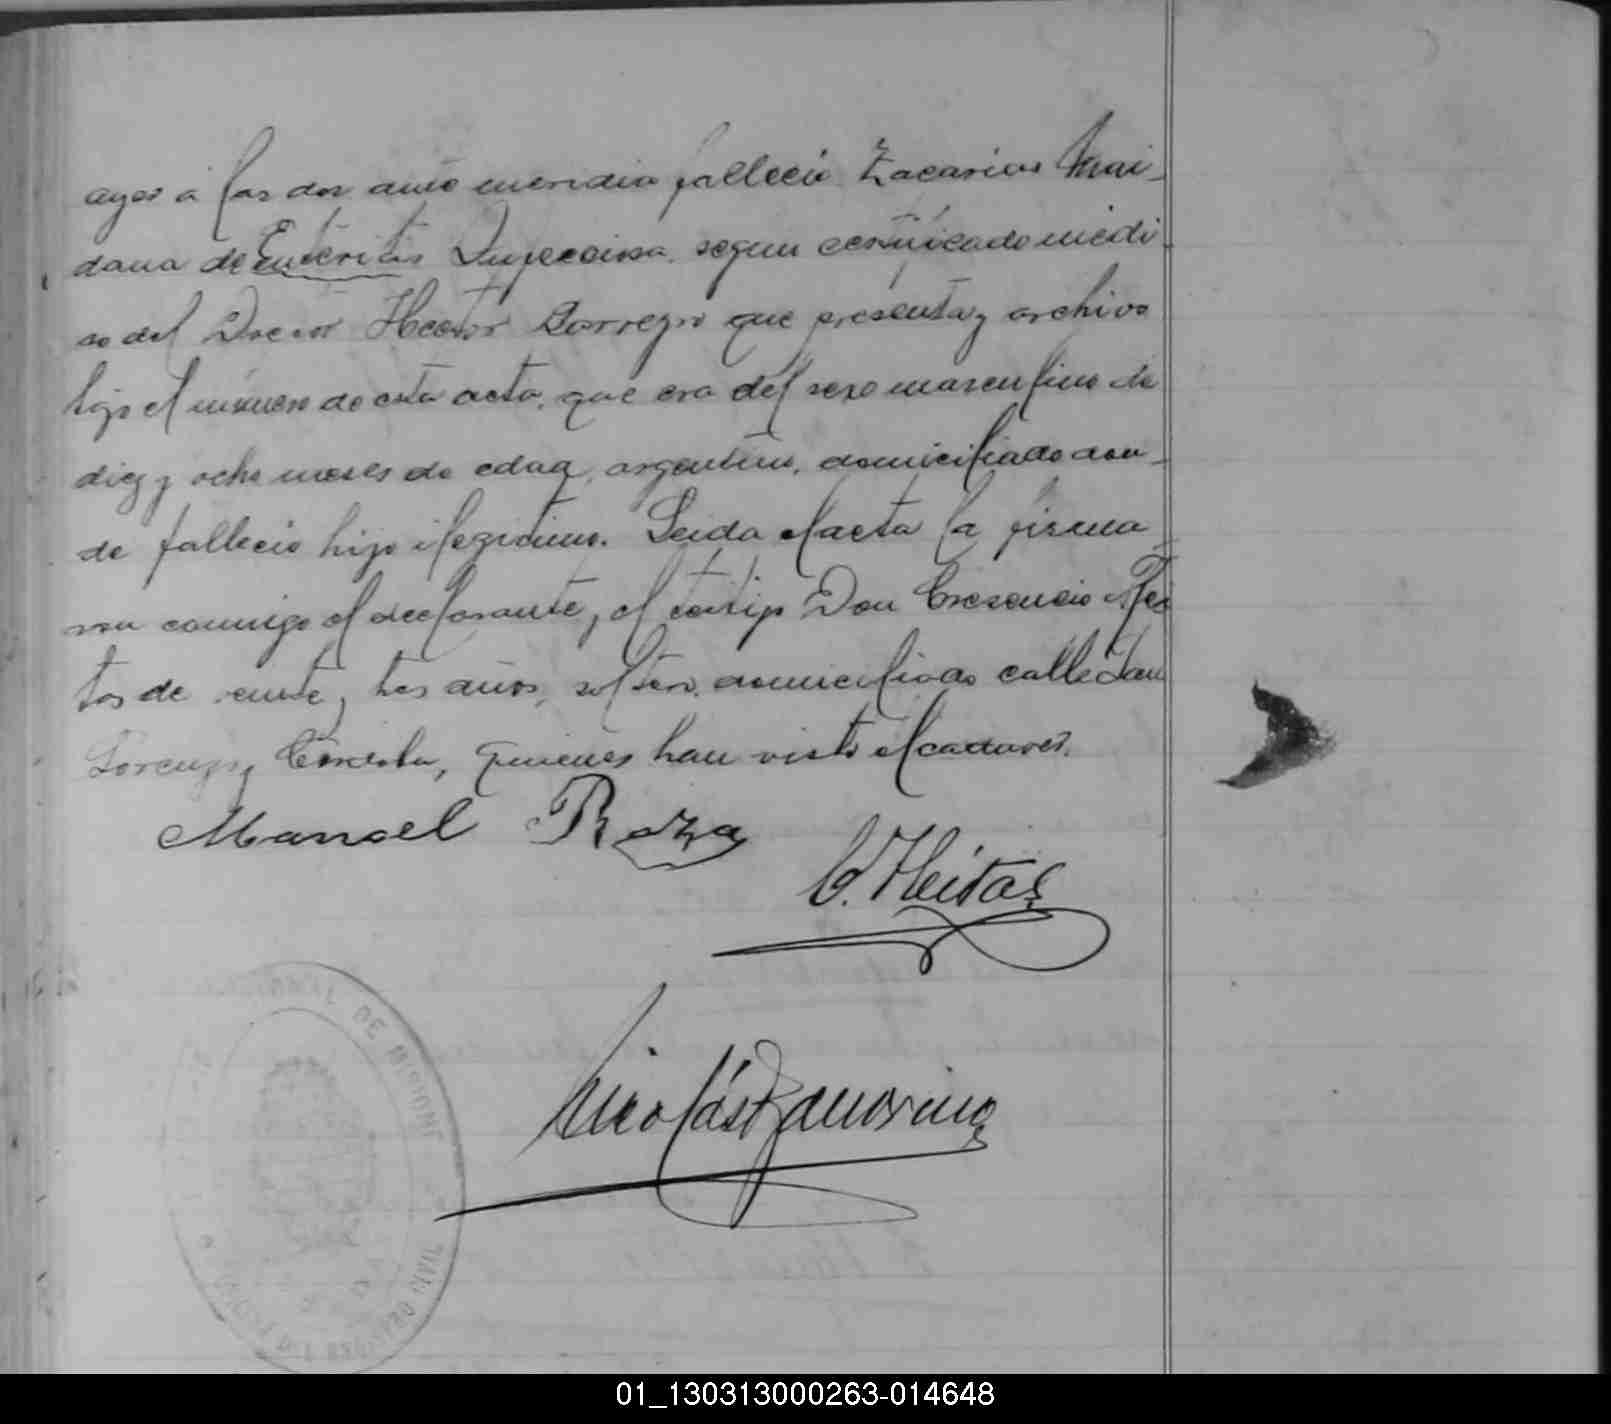 ayer á las dos ante meridia falleció Zacarias Mai-
dana de Enteritis Infecciosa segun certificado médi-
co del Doctor Hector Barreyro que presenta y archivo
bajo el número de esta acta, que era del sexo masculino de
diez y ocho meses de edad, argentino, domiciliado don-
de falleció hijo ilegitimo. Leida el acta la firma-
ron conmigo el declarante, y el testigo Don Cresencio Flei
tas de veinte y tres años, soltero, domiciliado calle San
Lorenzo y Córdoba, quienes han visto el cadaver.
Manoel Roza
C. Fleitas
Nicolás
DE MISIONE
REGISTRO CIVIL
01_130313000263-014648